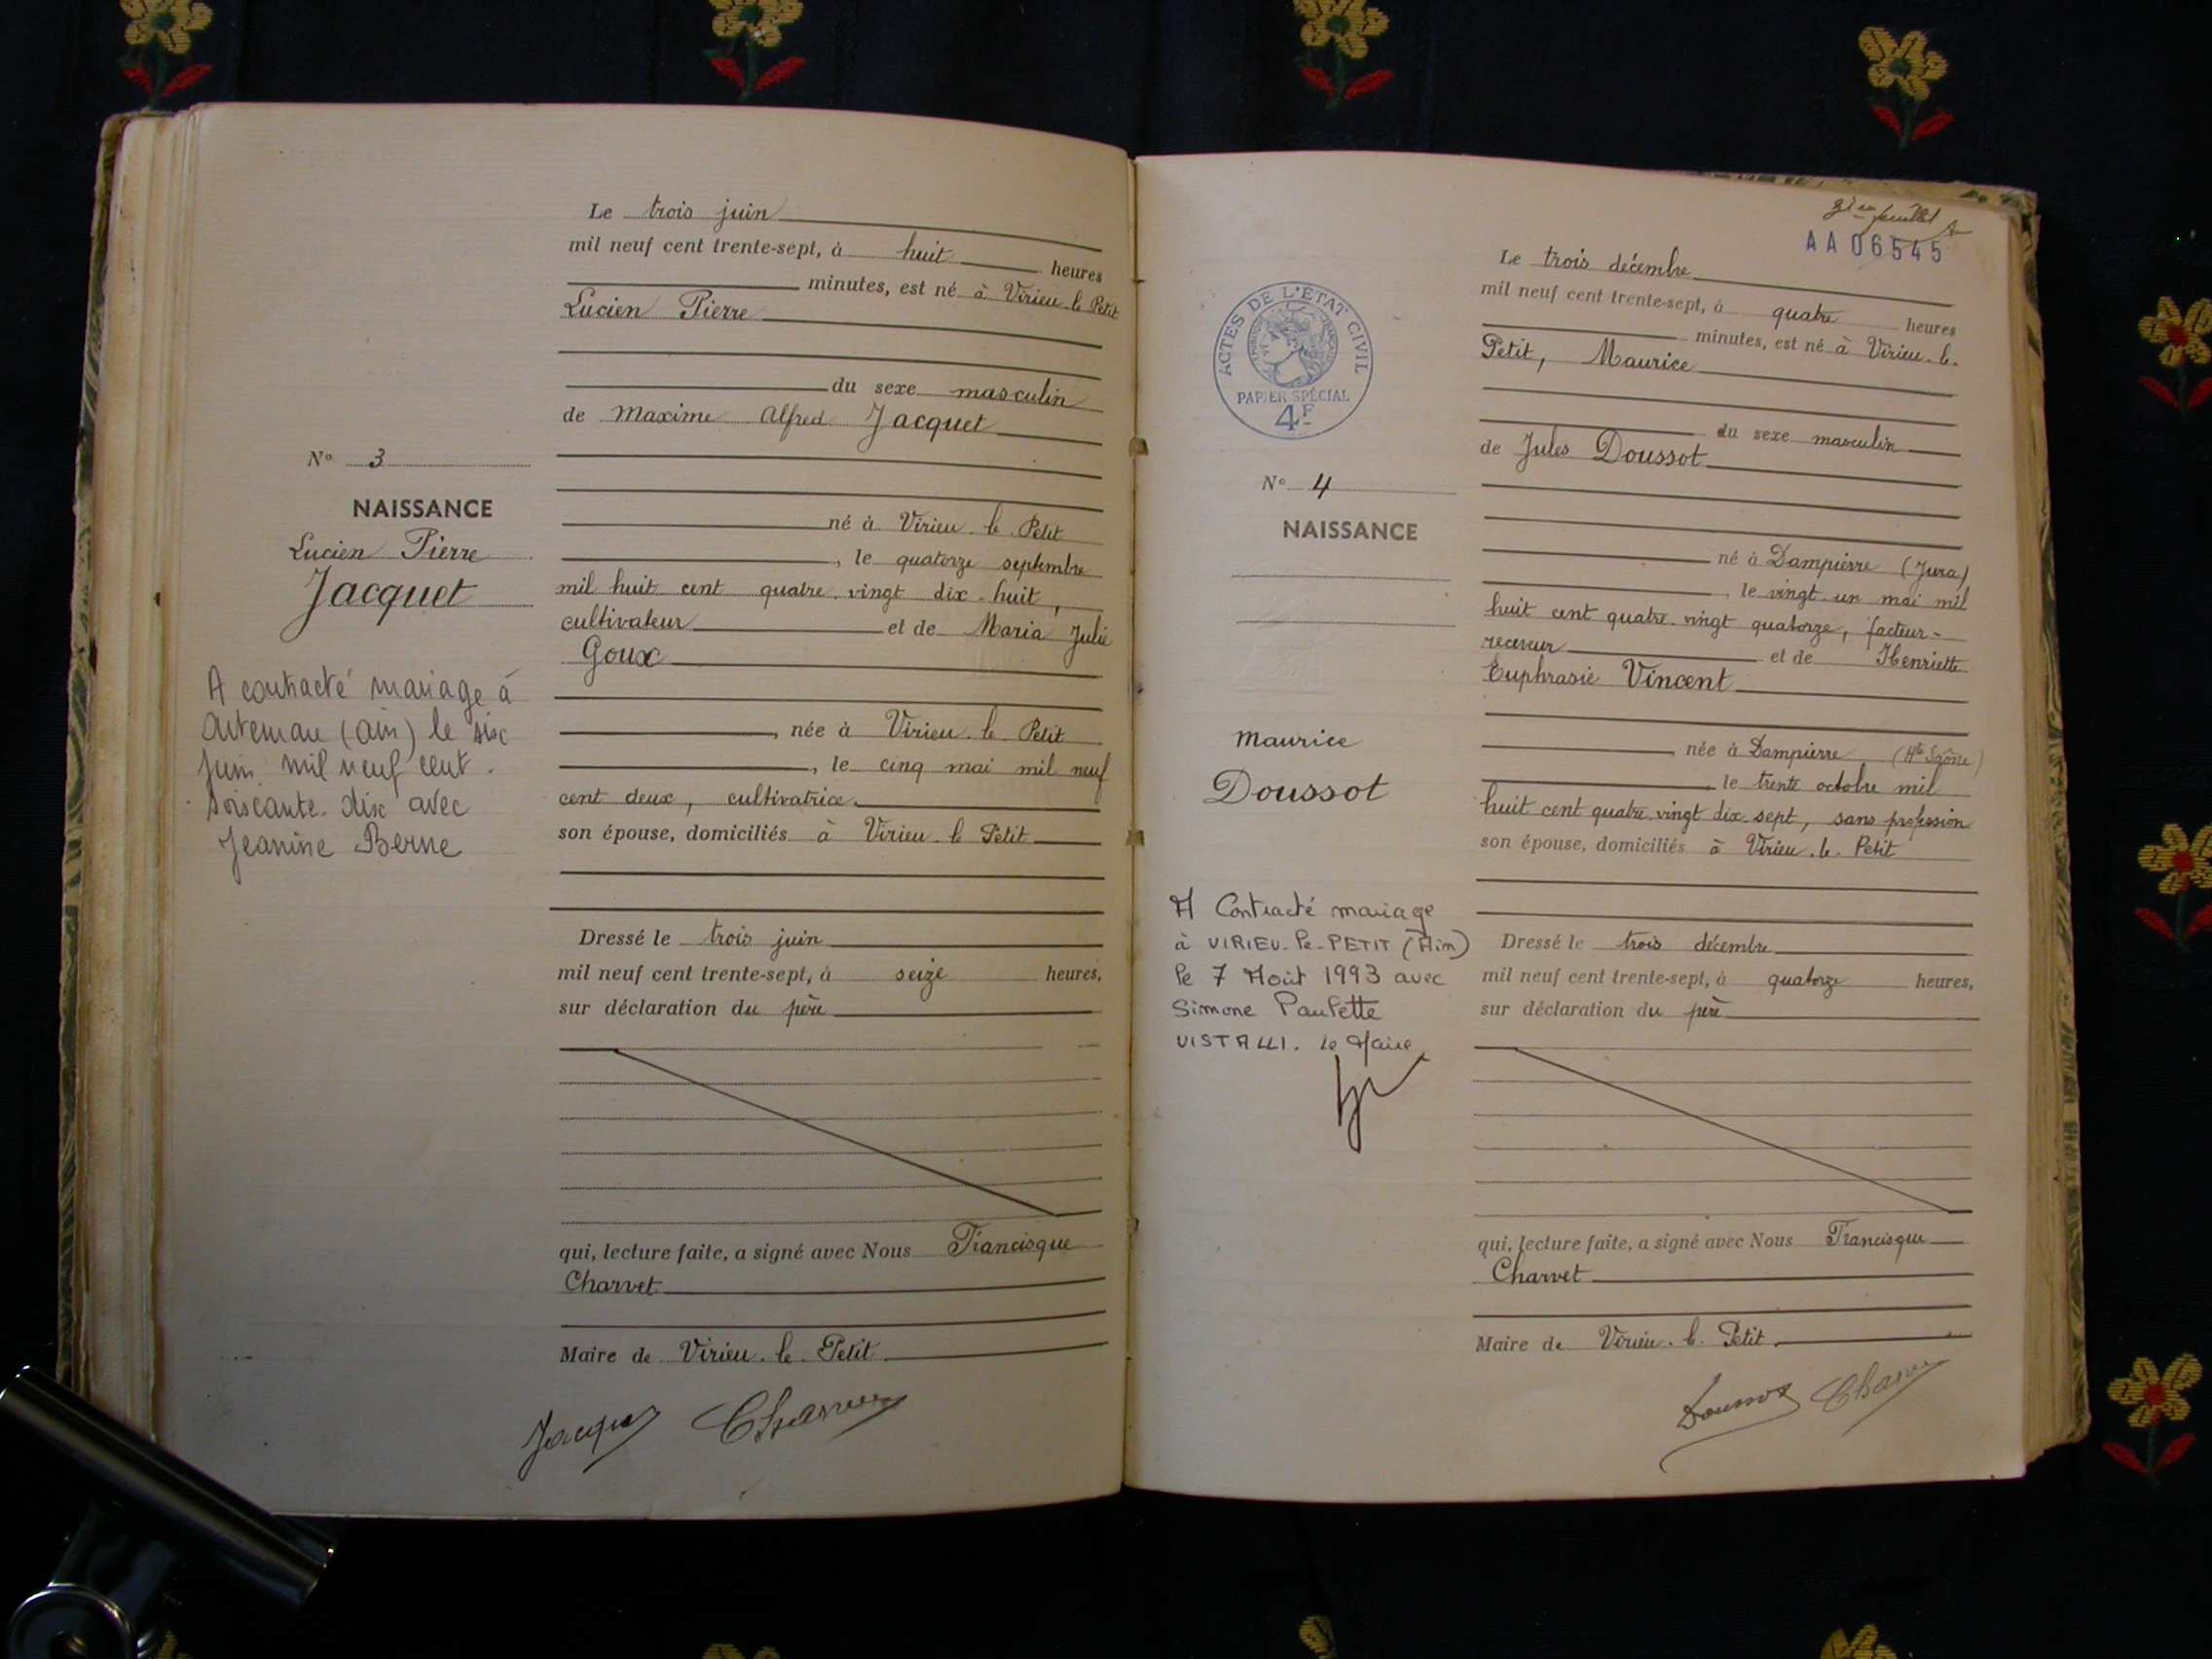 Le trois juin
mil neuf cent trente-sept, à huit heures
minutes, est né à Virieu-le Petit
Lucien Pierre
du sexe masculin
de Maxime Alfred Jacquet
né à Virieu-le-Petit
, le quatorze septembre
mil huit cent quatre-vingt dix-huit,
cultivateur et de Maria Julie
Goux
, née à Virieu-le-Petit
, le cinq mai mil neuf
cent deux, cultivatrice
son épouse, domiciliés à Virieu-le Petit
Dressé le trois juin
mil neuf cent trente-sept, à seize heures,
sur déclaration du père
qui, lecture faite, a signé avec Nous Francisque
Charvet
Maire de Virieu-le-Petit
Jacquet Charvet
N° 3
NAISSANCE
Lucien Pierre
Jacquet
A contracté mariage à
Artemare (ain) le six
juin mil neuf cent
soixante-dix avec
Jeanine Berne
feuillet
AA 06545
Le trois décembre
mil neuf cent trente-sept, à quatre heures
minutes, est né à Virieu-le-
Petit, Maurice
du sexe masculin
de Jules Doussot
né à Dampierre (Jura)
, le vingt un mai mil
huit cent quatre-vingt quatorze, facteur-
receveur et de Henriette
Euphrasie Vincent
, née à Dampierre (Hte Saône)
, le trente octobre mil
huit cent quatre-vingt dix-sept, sans profession
son épouse, domiciliés à Virieu-le-Petit
Dressé le trois décembre
mil neuf cent trente-sept, à quatorze heures,
sur déclaration du père
qui, lecture faite, a signé avec Nous Francisque
Charvet
Maire de Virieu-le-Petit
Doussot Charvet
ACTES DE L'ÉTAT CIVIL
PAPIER SPÉCIAL
4F
N° 4
NAISSANCE
Maurice
Doussot
A Contracté mariage
à VIRIEU-le-PETIT (Ain)
le 7 Août 1993 avec
Simone Paulette
VISTALLI. le Maire